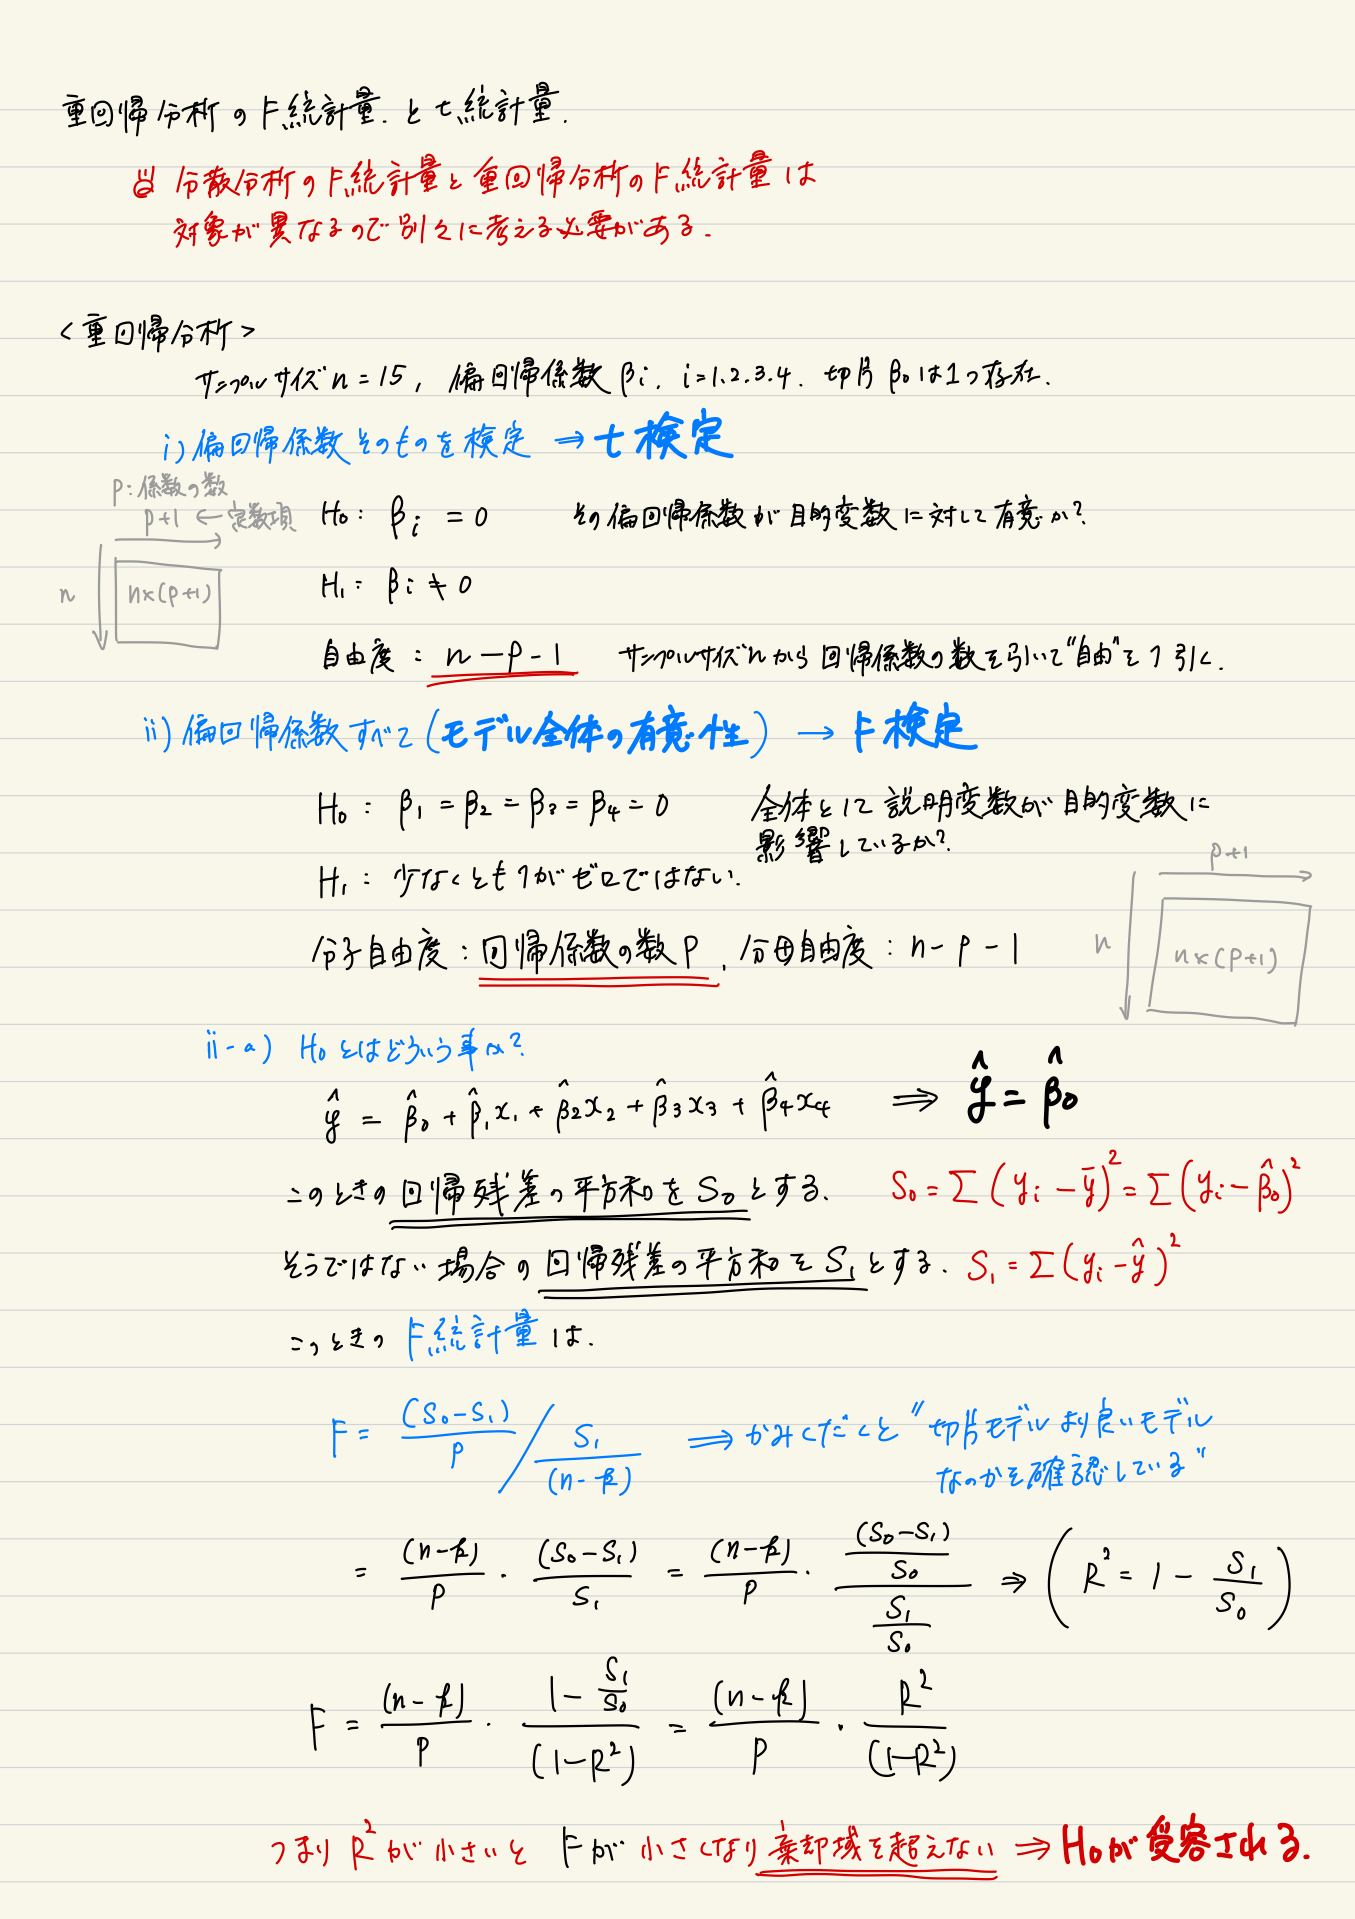 重回帰分析のF統計量.とt統計量.
分散分析のF統計量と重回帰分析のF統計量は
対象が異なるので別々に考える必要がある.
<重回帰分析>
サンプルサイズn=15, 偏回帰係数βi, i=1.2.3.4. 切片β0は1つ存在.
i)偏回帰係数そのものを検定 ⇒ t検定
p:係数の数
p+1 ← 定数項
n
n×(p+1)
H0: βi = 0 その偏回帰係数が目的変数に対して有意か?
H1: βi ≠ 0
自由度: n-p-1 サンプルサイズnから回帰係数の数を引いて"自由"を1引く.
ii)偏回帰係数すべて(モデル全体の有意性) → F検定
H0: β1=β2=β3=β4=0 全体として説明変数が目的変数に
影響しているか?
H1: 少なくとも1つがゼロではない.
p+1
n
n×(p+1)
分子自由度:回帰係数の数p, 分母自由度:n-p-1
ii-a) H0とはどういう事か?
ŷ = β̂0 + β̂1x1 + β̂2x2 + β̂3x3 + β̂4x4 ⇒ ŷ = β̂0
このときの回帰残差の平方和をS0とする. S0=Σ(yi-ȳ)²=Σ(yi-β̂0)²
そうではない場合の回帰残差の平方和をS1とする. S1=Σ(yi-ŷ)²
このときのF統計量は.
F = (S0-S1)/p / S1/(n-k) ⇒ かみくだくと"切片モデルより良いモデル
なのかを確認している"
= (n-k)/p · (S0-S1)/S1 = (n-k)/p · ((S0-S1)/S0)/(S1/S0) ⇒ (R² = 1 - S1/S0)
F = (n-k)/p · (1 - S1/S0)/(1-R²) = (n-k)/p · R²/(1-R²)
つまりR²が小さいとFが小さくなり棄却域を超えない ⇒ H0が受容される.